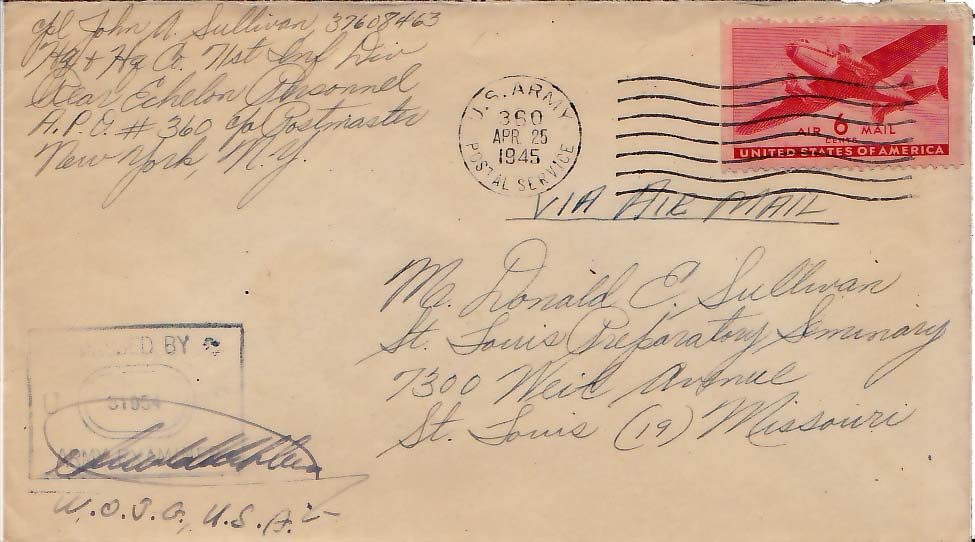 Cpl John A. Sullivan, 37608463
Hq + Hq Co. 71st Inf Div
Rear Echelon Personnel
A.P.O. # 360 c/o Postmaster
New York, N.Y.
U.S. ARMY
360
APR. 25
1945
POSTAL SERVICE
AIR 6 MAIL
CENTS
UNITED STATES OF AMERICA
VIA AIR MAIL
Mr. Donald E. Sullivan
St. Louis Preparatory Seminary
7300 Weil Avenue
St. Louis (19) Missouri
BY
U
ARMY EXAMINER
W.O.J.G., U.S.A.